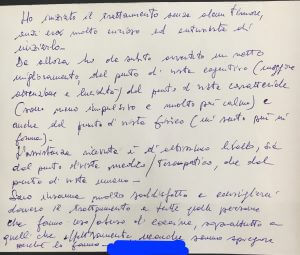 Ho iniziato il trattamento senza alcun timore,
anzi ero molto curioso ed entusiasta di
iniziarlo.
Da allora ho da subito avvertito un netto
miglioramento, dal punto di vista cognitivo (maggiore
attenzione e lucidità) dal punto di vista caratteriale
(sono meno impulsivo e molto più calmo) e
anche dal punto di vista fisico (mi sento più in
forma).
L'assistenza ricevuta è d'altissimo livello, sia
dal punto di vista medico/terapeutico, che dal
punto di vista umano.
Sono insomma molto soddisfatto e consiglierei
davvero il trattamento a tutte quelle persone
che fanno uso/abuso di cocaina, soprattutto a
quelli che effettivamente neanche sanno spiegare
perché lo fanno.